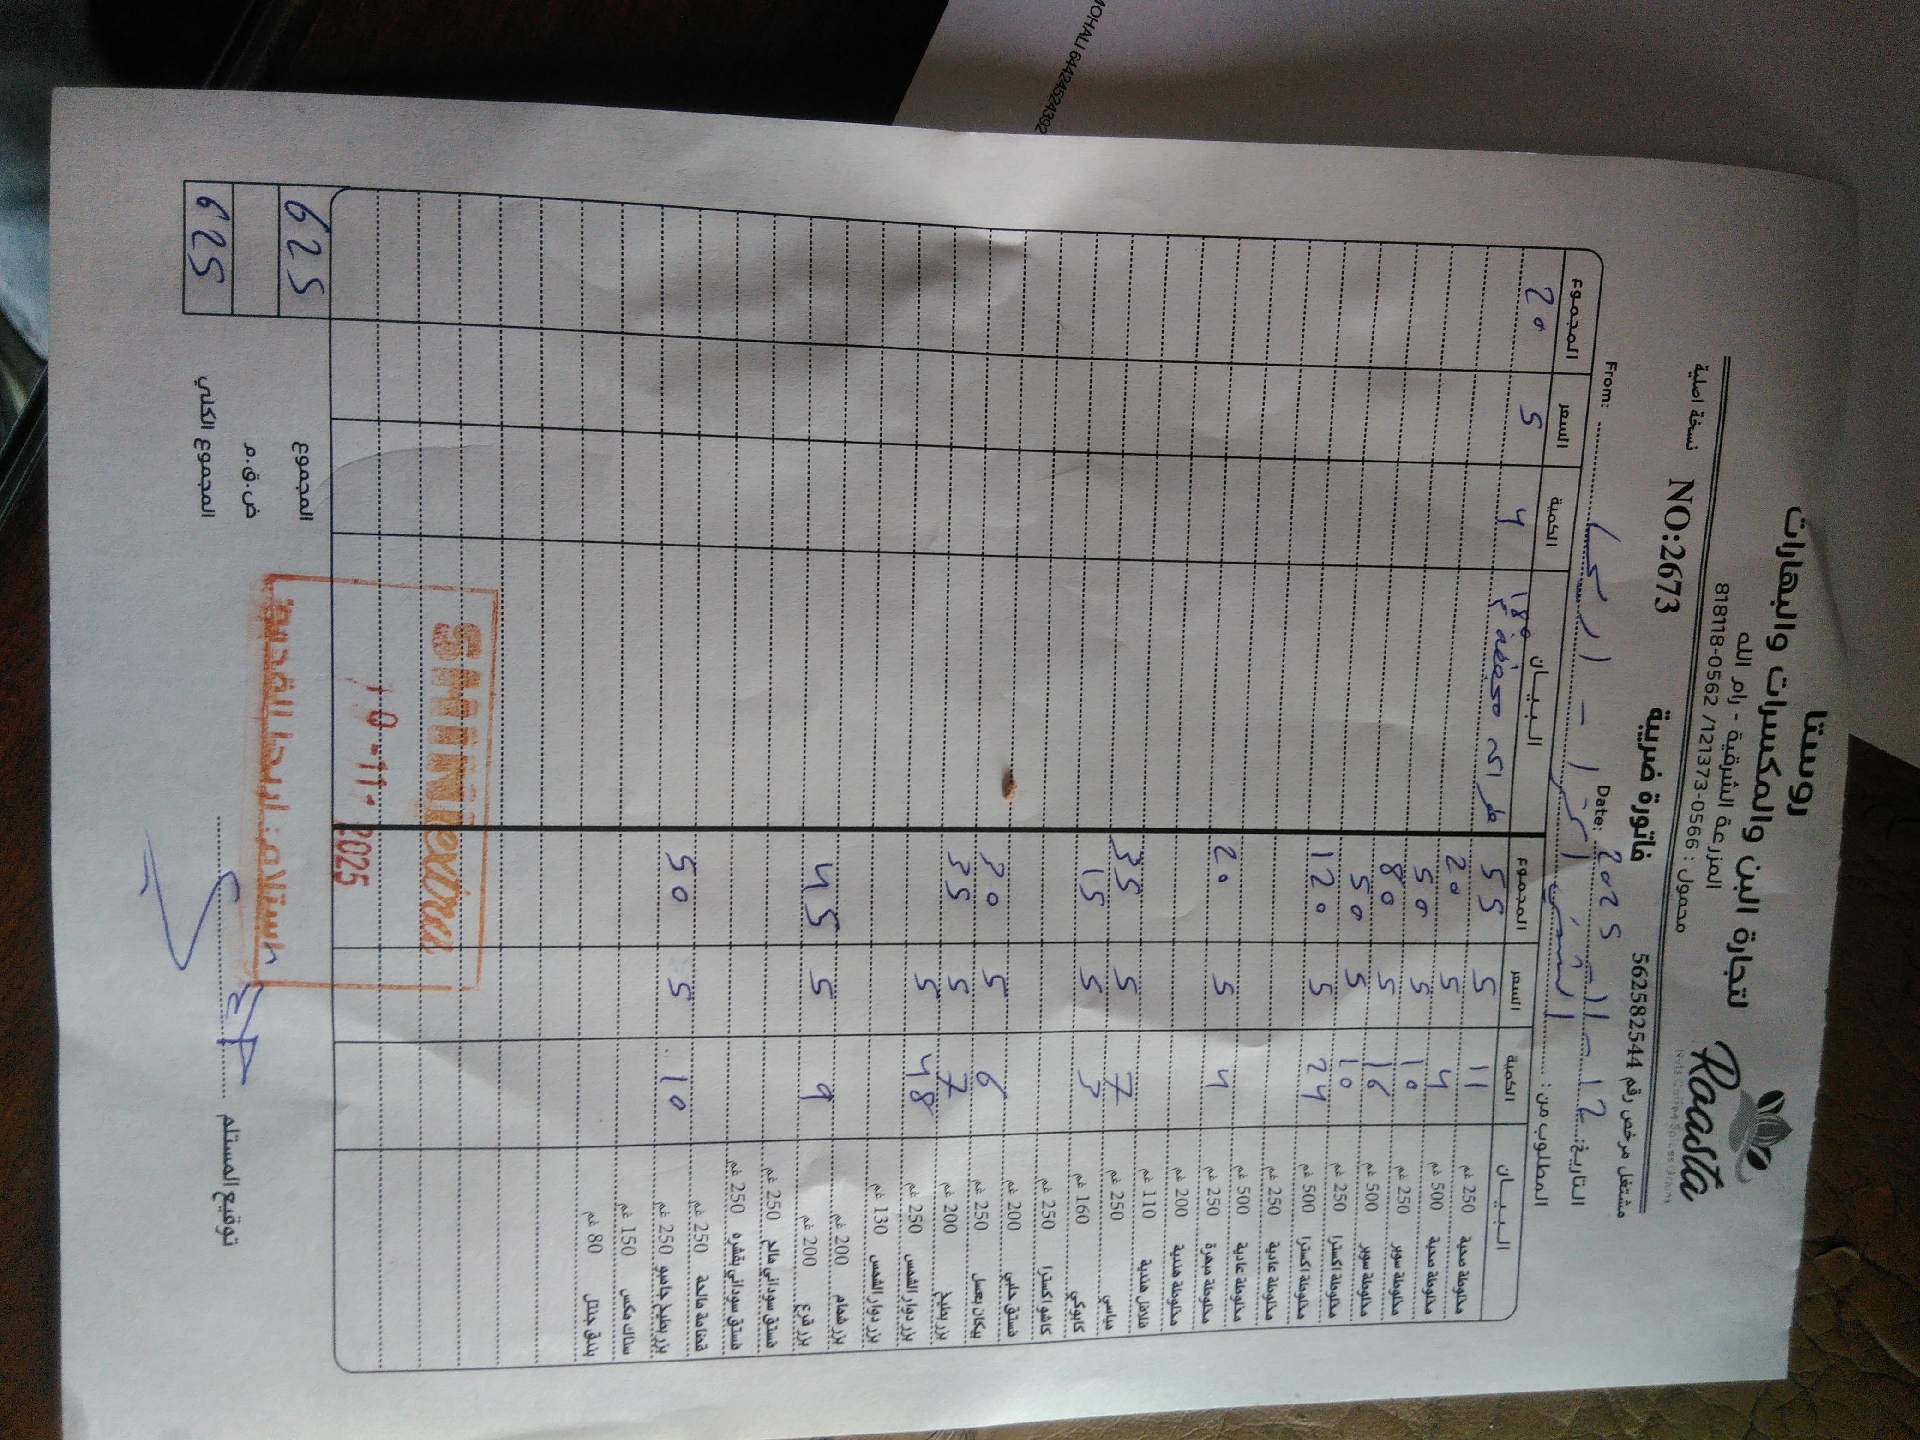 روستا
لتجارة البن والمكسرات والبهارات
المزرعة الشرقية - رام الله
محمول : 0566-121373/ 0562-818118
Roasta
مشتغل مرخص رقم 562582544
فاتورة ضريبة
NO:2673
نسخة اصلية
التاريخ: 12 - 11 - 2025 Date:
From:
المطلوب من:
البيـــان الكمية السعر المجموع البيـــان الكمية السعر المجموع
مخلوطة صحية 250 غم 11 5 55
4 5 20
مخلوطة صحية 500 غم 4 5 20
مخلوطة سوبر 250 غم 10 5 50
مخلوطة سوبر 500 غم 16 5 80
مخلوطة اكسترا 250 غم 10 5 50
مخلوطة اكسترا 500 غم 24 5 120
مخلوطة عادية 250 غم
مخلوطة عادية 500 غم
مخلوطة مبهرة 250 غم 4 5 20
مخلوطة هندية 200 غم
فلافل هندية 110 غم
مياسي 250 غم 7 5 35
كابوكي 160 غم 3 5 15
كاشو اكسترا 250 غم
فستق حلبي 200 غم
بيكان بعسل 250 غم 6 5 30
بزر بطيخ 200 غم 7 5 35
بزر دوار الشمس 250 غم 48 5
بزر دوار الشمس 130 غم
بزر شمام 200 غم
بزر قرع 200 غم 9 5 45
فستق سوداني مالح 250 غم
فستق سوداني بقشره 250 غم
قضامة مالحة 250 غم
بزر بطيخ جامبو 250 غم 10 5 50
سناك مكس 150 غم
بندق جنتل 80 غم
SHINexpress
10-11-2025
استلام: اريحا القديم
المجموع 625
ض.ق.م
المجموع الكلي 625
توقيع المستلم
MOHALI 64424524392